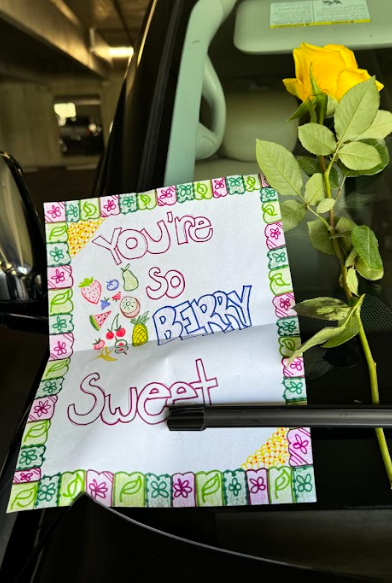 You're
so
BERRY
Sweet